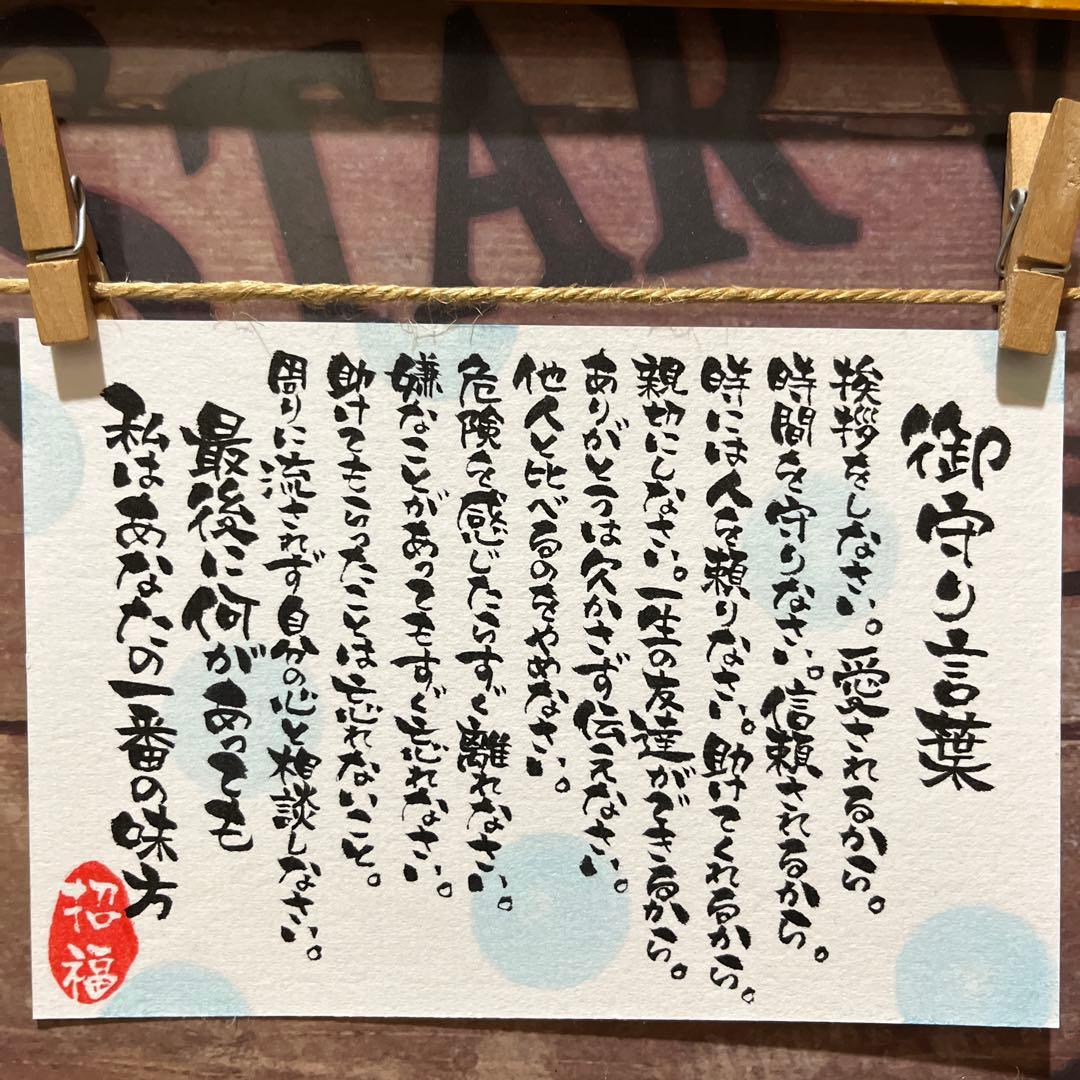 STAR
御守り言葉
挨拶をしなさい。愛されるから。
時間を守りなさい。信頼されるから。
時には人を頼りなさい。助けてくれるから。
親切にしなさい。一生の友達ができるから。
ありがとうは欠かさず伝えなさい。
他人と比べるのをやめなさい。
危険を感じたらすぐ離れなさい。
嫌なことがあってもすぐ忘れなさい。
助けてもらったことは忘れないこと。
周りに流されず自分の心と相談しなさい。
最後に何があっても
私はあなたの一番の味方
招福